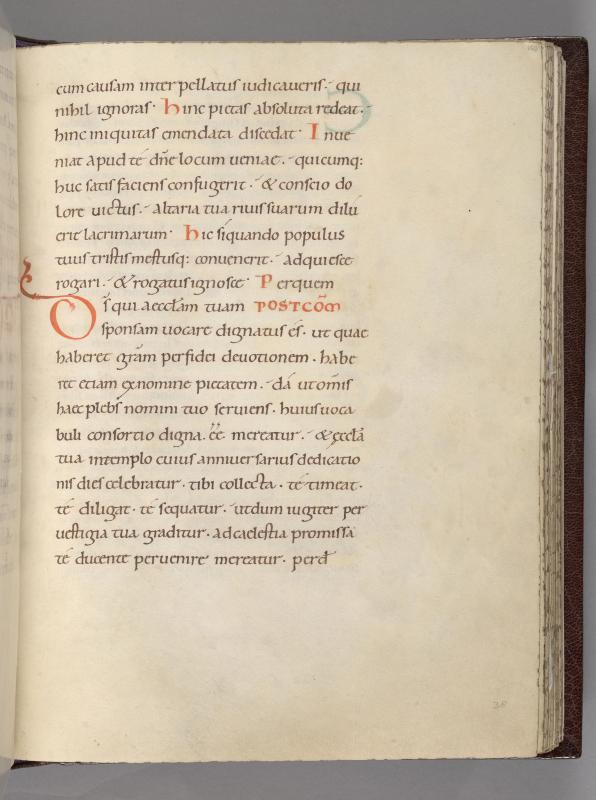 cum causam interpellatus iudicaueris. qui
nihil ignoras. hinc pietas absoluta redeat.
hinc iniquitas emendata discedat. Inue
niat apud té dn̄e locum ueniae. quicumq:
huc satisfaciens confugerit. & conscio do
lore uictus. altaria tua riuis suarum dilu
erit lacrimarum. hic siquando populus
tuus tristis mestusq: conuenerit. adquiesce
rogari. & rogatus ignosce. Per quem
POSTCOM̄
Ds̄ qui aecclam tuam
sponsam uocare dignatus és. ut quae
haberet grām per fidei deuotionem. habe
ret etiam ex nomine pietatem. dá ut om̄is
haec plebs nomini tuo seruiens. huius uoca
buli consortio digna. éé mereatur. & ecclā
tua in templo cuius anniuersarius dedicatio
nis dies celebratur. tibi collecta. té timeat.
té diligat. té sequatur. ut dum iugiter per
uestigia tua graditur. ad caelestia promissa
té ducente peruenire mereatur. perd̄
38